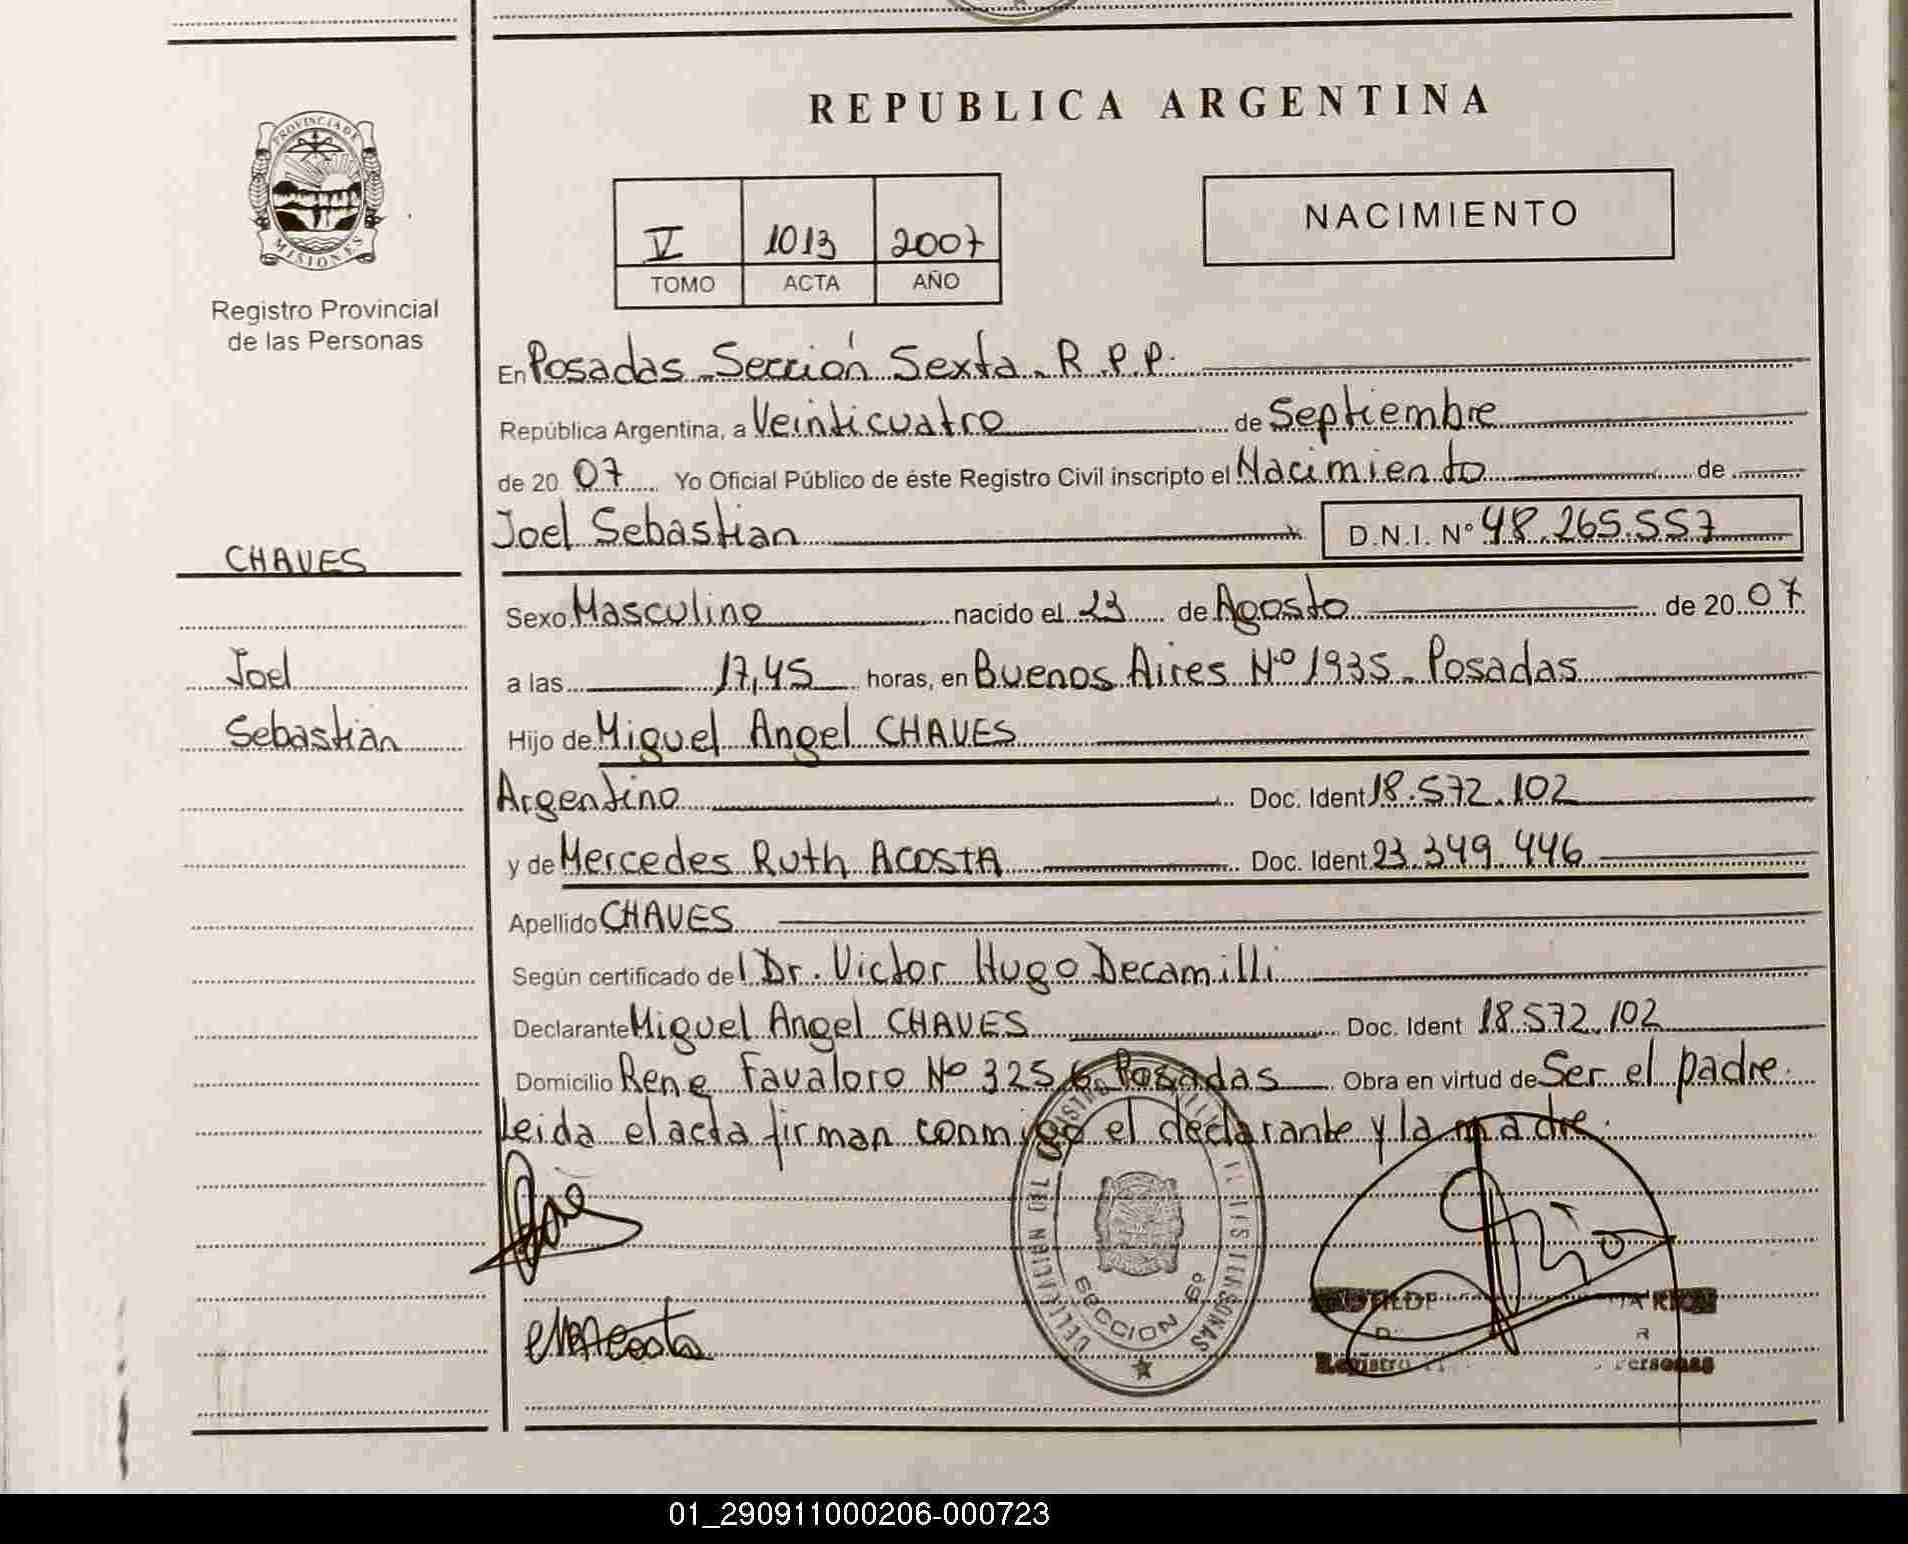 REPUBLICA ARGENTINA
PROVINCIA DE
MISIONES
Registro Provincial
de las Personas
V 1013 2007
TOMO ACTA AÑO
NACIMIENTO
En Posadas Sección Sexta. R.P.P.
República Argentina, a Veinticuatro de Septiembre
de 20 07 Yo Oficial Público de éste Registro Civil inscripto el Nacimiento de
Joel Sebastian D.N.I. Nº 48.265.557
CHAVES
Sexo Masculino nacido el 23 de Agosto de 20 07
Joel
a las 17,45 horas, en Buenos Aires Nº 1935 - Posadas
Sebastian
Hijo de Miguel Angel CHAVES
Argentino Doc. Ident 18.572.102
y de Mercedes Ruth ACOSTA Doc. Ident. 23.349.446
Apellido CHAVES
Según certificado del Dr. Victor Hugo Decamilli
Declarante Miguel Angel CHAVES Doc. Ident 18.572.102
Domicilio Rene Favaloro Nº 3256 Posadas Obra en virtud de Ser el padre.
Leida el acta firman conmigo el declarante y la madre.
SECCION 6º
01_290911000206-000723